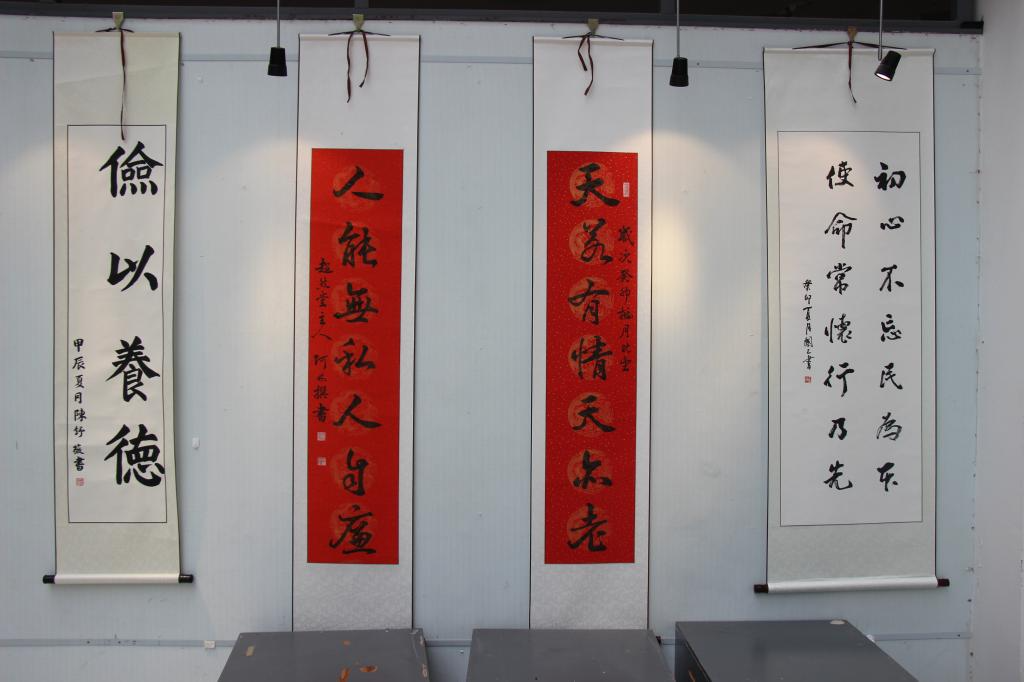 初心不忘民為本
使命常懷行乃先
癸卯夏月國之書
歲次癸卯梅月於雲
天若有情天亦老
人能無私人自廉
趙然堂主人阿不撰書
儉以養德
甲辰夏月陳竹筱書